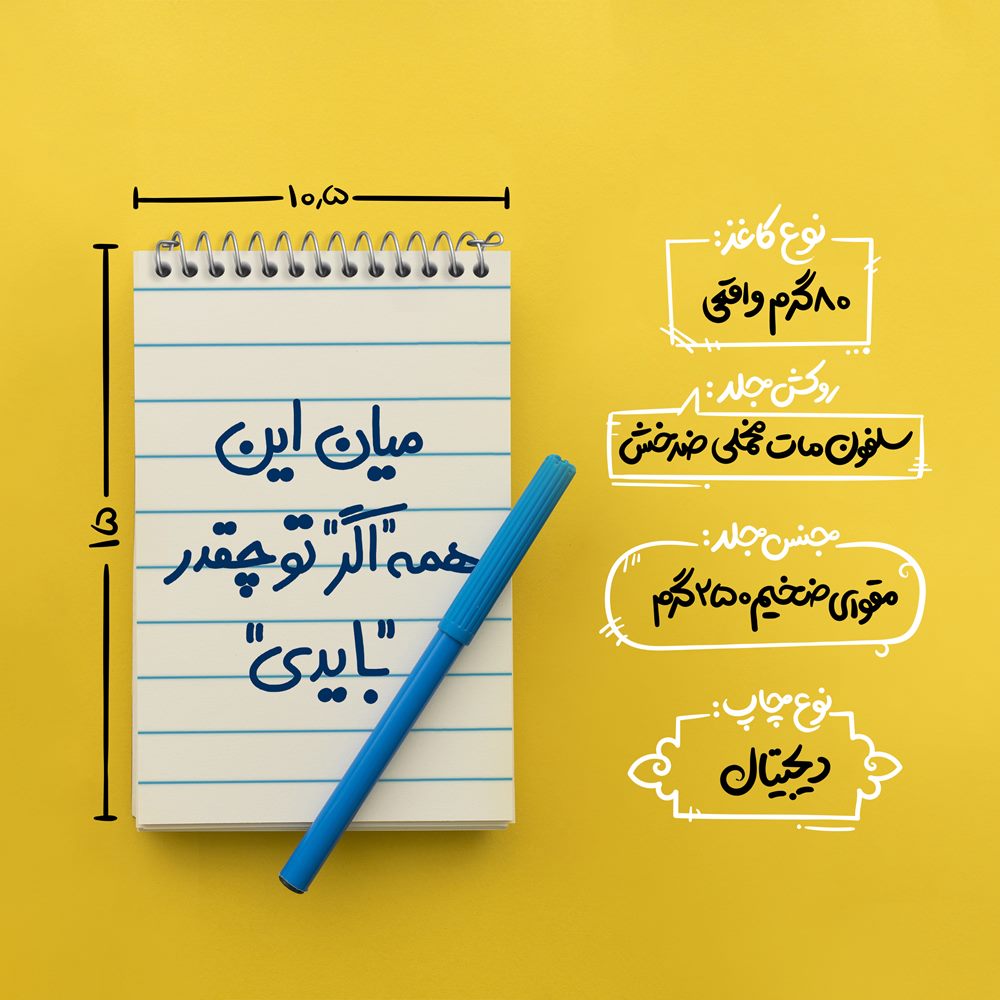 ۱۰٫۵
۱۵
میان این
همه "اگر" تو چقدر
"بایدی"
نوع کاغذ:
۸۰ گرم واقعی
روکش جلد:
سلفون مات مخملی ضدخش
جنس جلد:
مقوای ضخیم ۲۵۰ گرم
نوع چاپ:
دیجیتال